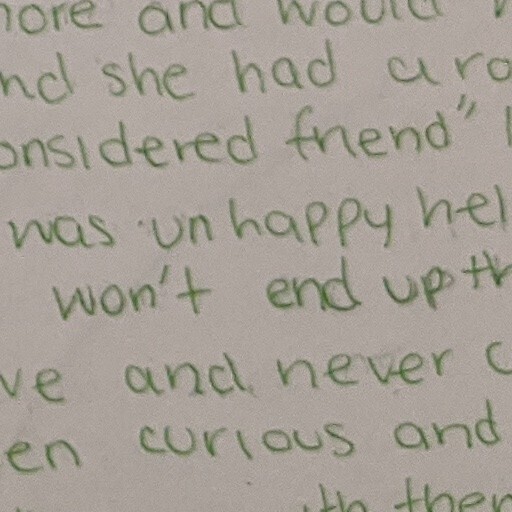 more and would
nd she had a ro
onsidered friend"
was unhappy hel
won't end up th
ve and never c
en curious and
th then